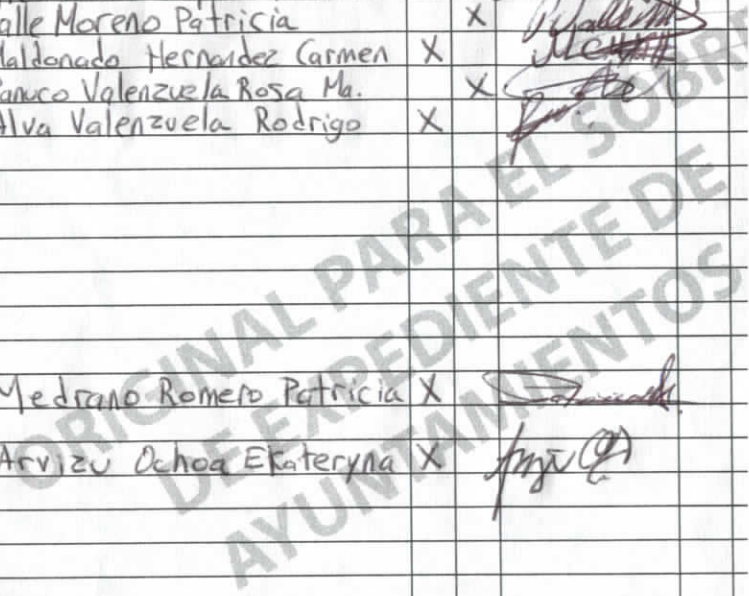 alle Moreno Patricia X
aldonado Hernandez Carmen X
anuco Valenzuela Rosa Ma. X
Alva Valenzuela Rodrigo X
Medrano Romero Patricia X
Arvizu Ochoa Ekateryna X
ORIGINAL PARA EL SOBRE
DE EXPEDIENTE DE
AYUNTAMIENTOS